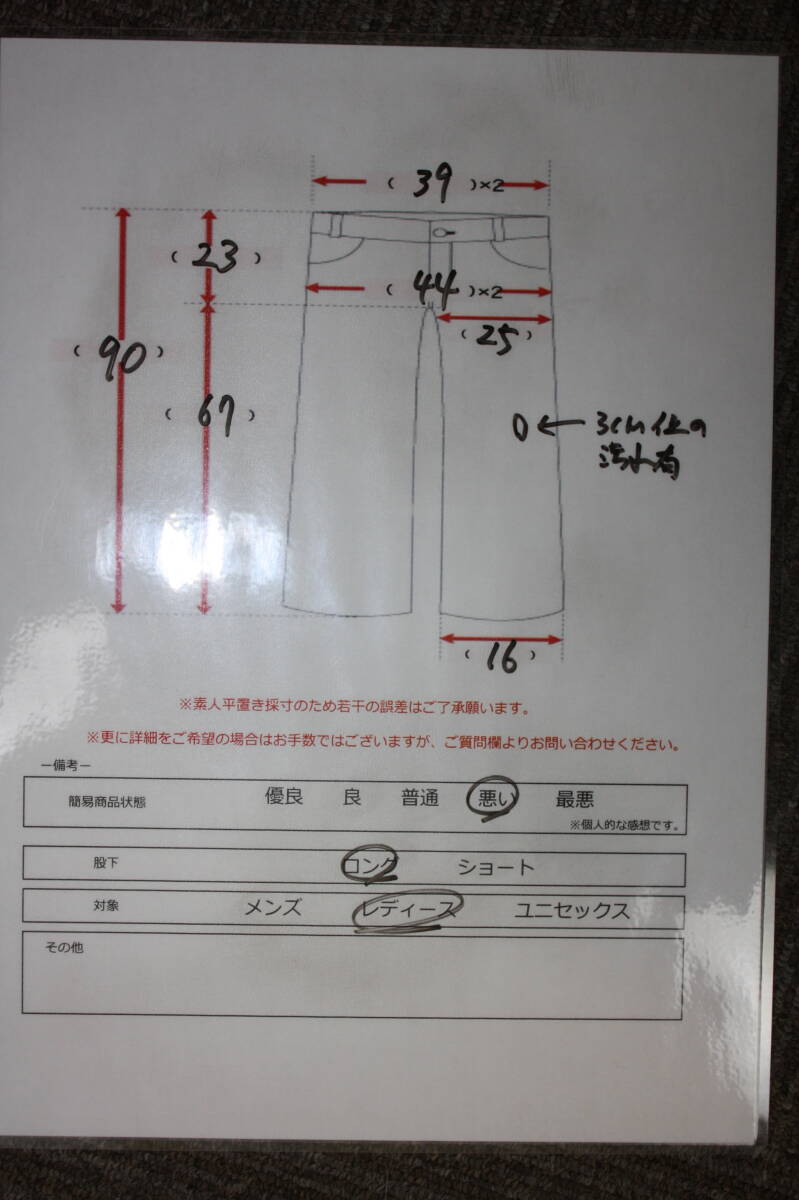 ( 39 )×2
( 23 )
( 44 )×2
( 25 )
( 90 )
( 67 )
3cm位の
汚れ有
( 16 )
※素人平置き採寸のため若干の誤差はご了承願います。
※更に詳細をご希望の場合はお手数ではございますが、ご質問欄よりお問い合わせください。
ー備考ー
簡易商品状態 優良 良 普通 悪い 最悪
※個人的な感想です。
股下 ロング ショート
対象 メンズ レディース ユニセックス
その他